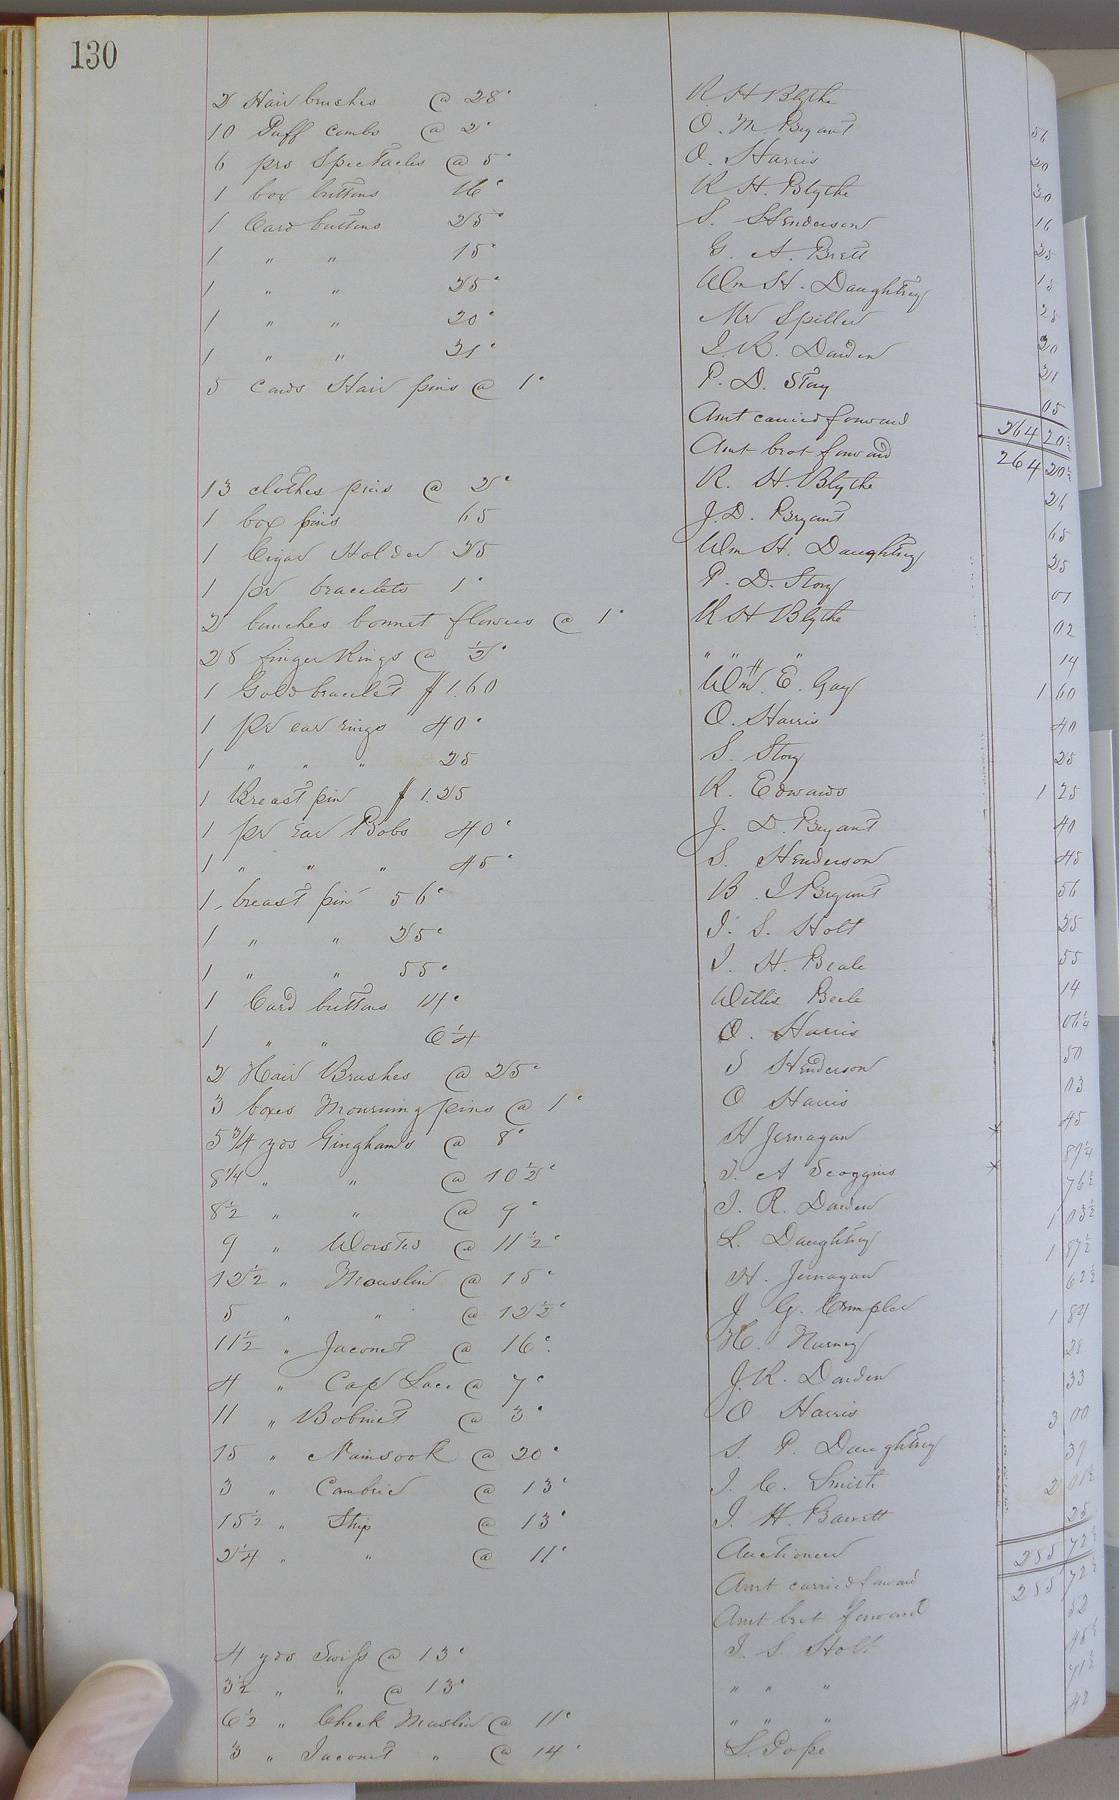 130
2 Hair brushes @ 28c R H Blythe 56
10 Puff combs @ 2c O. M Bryant 20
6 prs Spectacles @ 5c O. Harris 30
1 box buttons 16c R H. Blythe 16
1 Card buttons 25c S. Henderson 25
1 " " 15c G. A. Brett 15
1 " " 25c Wm H. Daughtrey 25
1 " " 20c Mr Spiller 20
1 " " 21c J R. Darden 21
5 cards Hair pins @ 1c P. D. Story 05
Amt carried forward 264 20½
Amt brot forward 264 20½
13 clothes pins @ 2c R. H. Blythe 26
1 box pins 65 J. D. Bryant 65
1 Cigar Holder 25 Wm H. Daughtrey 25
1 pr bracelets 1c P. D. Story 01
2 bunches bonnet flowers @ 1c R H Blythe 02
28 finger Rings @ ½c " " " 14
1 Gold bracelet $1.60 Wm E. Gay 1 60
1 pr ear rings 40c O. Harris 40
1 " " " 25 S. Story 25
1 Breast pin $1.25 R. Edwards 1 25
1 pr Ear Bobs 40c J. D. Bryant 40
1 " " " 45c S. Henderson 45
1 breast pin 56c B. J Bryant 56
1 " " 25c J. S. Holt 25
1 " " 55c J. H. Beale 55
1 Card buttons 14c Willis Beele 14
1 " " 6¼ O. Harris 06¼
2 Hair Brushes @ 25c S Henderson 50
3 boxes Mourning pins @ 1c O Harris 03
5¾ yds Ginghams @ 8c H Jernagan 45
8¼ " " @ 10½c J. A Scoggins 87¼
8½ " " @ 9c J. R. Darden 76½
9 " Worsted @ 11½c L. Daughtrey 1 03½
12½ " Mouslin @ 15c H. Jernagan 1 87½
5 " " @ 12½c J G. Crumpler 62½
11½ " Jaconet @ 16c H. Nurney 1 84
4 " Cap Lace @ 7c J. R. Darden 28
11 " Bobinet @ 3c O Harris 33
15 " Nainsook @ 20c S. P. Daughtrey 3 00
3 " Cambric @ 13c J. C. Smith 39
15½ " Strip @ 13c J. H. Barrett 2 01½
2¼ " " @ 11c Auctioneer 25
Amt carried forward 285 72½
Amt brot forward 285 72½
4 yds Swiss @ 13c J. S Holt 52
3½ " " @ 13c " " " 45½
6½ " Check Muslin @ 11c " " " 71½
3 " Jaconet " @ 14c L. Pope 42